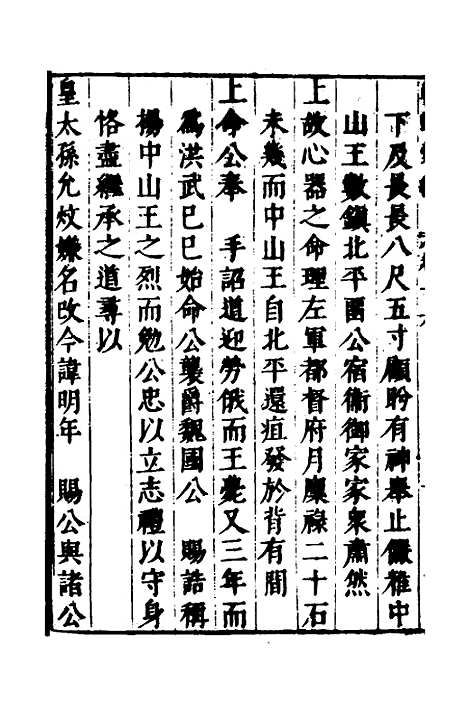 下及長長八尺五寸顧盻有神舉止儼雅中
山王數鎮北平畱公宿衛御家家衆肅然
上故心器之命理左軍都督府月廩祿二十石
未幾而中山王自北平還疽發於背有間
上命公奉　手詔道迎勞俄而王薨又三年而
爲洪武巳巳始命公襲爵魏國公　賜誥稱
揚中山王之烈而勉公忠以立志禮以守身
恪盡繼承之道尋以
皇太孫允炆嫌名改今諱明年　賜公與諸公